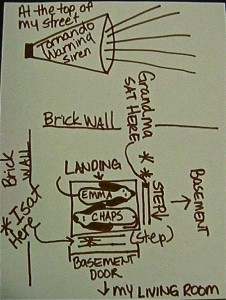 At the top of
my street
Tornando
Warning
siren
Brick WALL
Grandma
SAT HERE
Brick
WALL
LANDING
EMMA
CHAPS
STEP
BASEMENT
I sat
Here
(Step)
BASEMENT
DOOR
MY LIVING ROOM